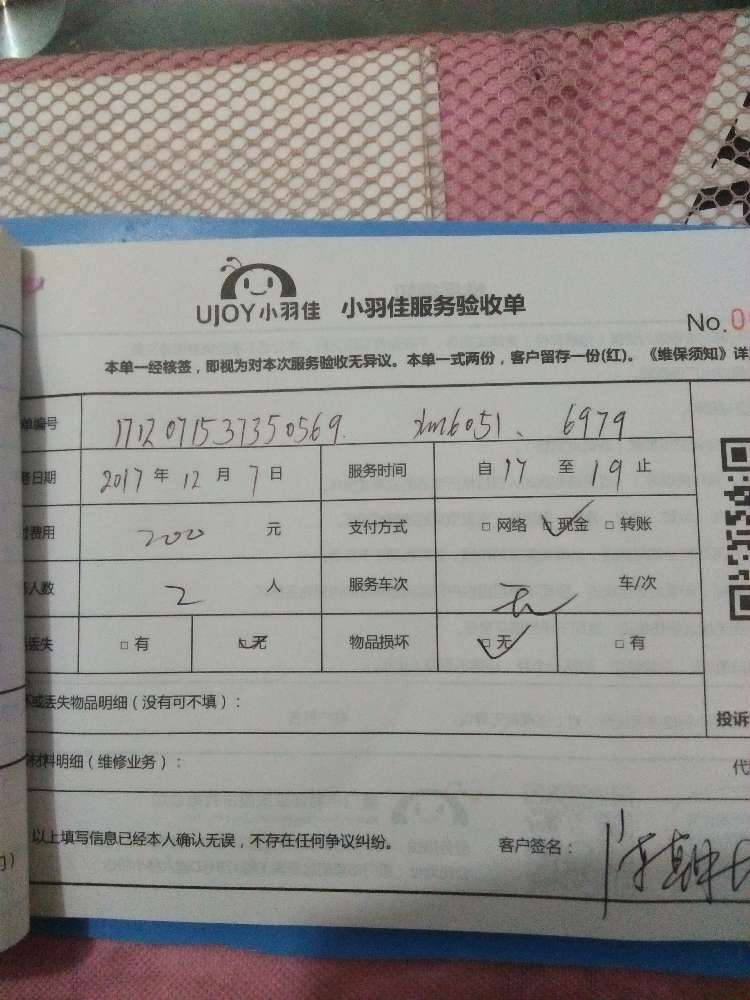 UJOY小羽佳 小羽佳服务验收单
No.0
本单一经核签，即视为对本次服务验收无异议。本单一式两份，客户留存一份(红)。《维保须知》详
单编号 1712071537350569. xm6051、 6979
日期 2017 年 12 月 7 日 服务时间 自 17 至 19 止
费用 200 元 支付方式 □ 网络 ☑ 现金 □ 转账
人数 2 人 服务车次 无 车/次
丢失 □ 有 ☑ 无 物品损坏 ☑ 无 □ 有
或丢失物品明细（没有可不填）：
投诉
材料明细（维修业务）：
代
以上填写信息已经本人确认无误，不存在任何争议纠纷。 客户签名：